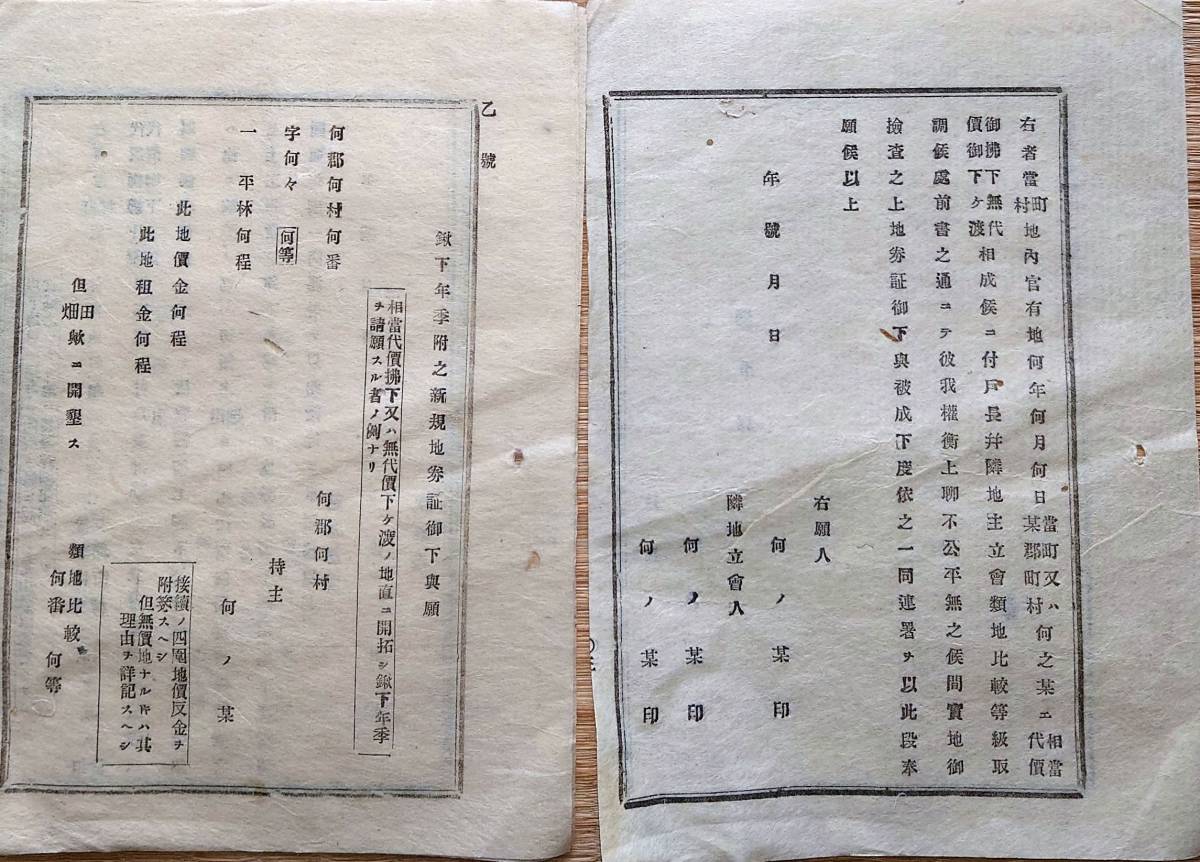 右者當町村地內官有地何年何月何日當町又ハ某郡町村何之某ヱ相當代價
御拂下無代價御下ケ渡相成候ニ付戶長幷隣地主立會類地比較等級取
調候處前書之通ニテ彼我權衡上聊不公平無之候間實地御
撿查之上地券証御下與被成下度依之一同連署ヲ以此段奉
願候以上
年號月日
右願人
何ノ某印
隣地立會人
何ノ某印
何ノ某印
乙號
鍬下年季附之新規地券証御下與願
相當代價拂下又ハ無代價下ケ渡ノ地直ニ開拓シ鍬下年季
ヲ請願スル者ノ例ナリ
何郡何村
持主
何ノ某
何郡何村何番
字何々 何等
一 平林何程
此地價金何程
此地租金何程
但田畑歟ニ開墾ス
類地比較
何番何等
接續ノ四圍地價反金ヲ
附箋スヘシ
但無價地ナルトキハ其
理由ヲ詳記スヘシ